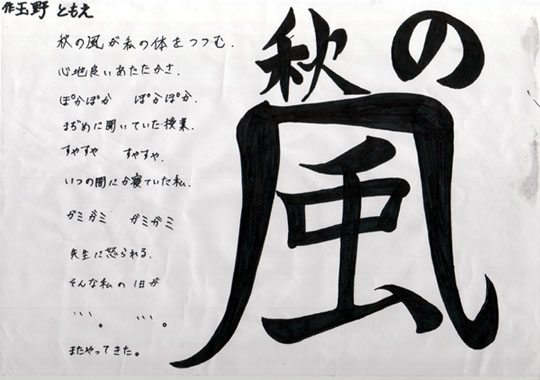 秋の
風
作玉野 ともえ
秋の風が私の体をつつむ.
心地良いあたたかさ.
ぽかぽか ぽかぽか.
まぢめに聞いていた授業.
すやすや すやすや.
いつの間にか寝ていた私.
ガミガミ ガミガミ
先生に怒られる.
そんな私の1日が
、、、。 、、、。
またやってきた。